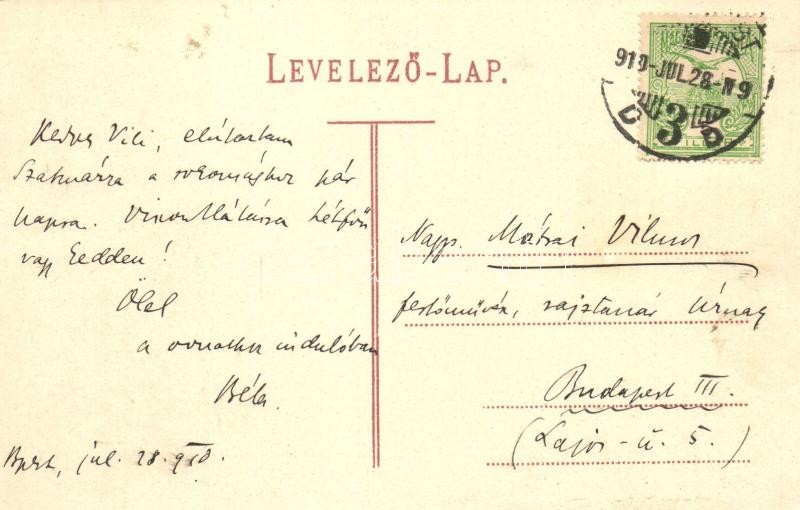 LEVELEZŐ-LAP.
Kedves Vili, elutaztam
Szatmárra a rokonsághoz pár
napra. Viszontlátásra hétfőn
vagy kedden!
Ölel
a vonathoz indulóban
Béla
Bpest, jul. 28. 910.
Nagys. Mátrai Vilmos
festőművész, rajztanár Úrnak
Budapest III.
(Lajos-u. 5.)
910-JUL.28-N9
3